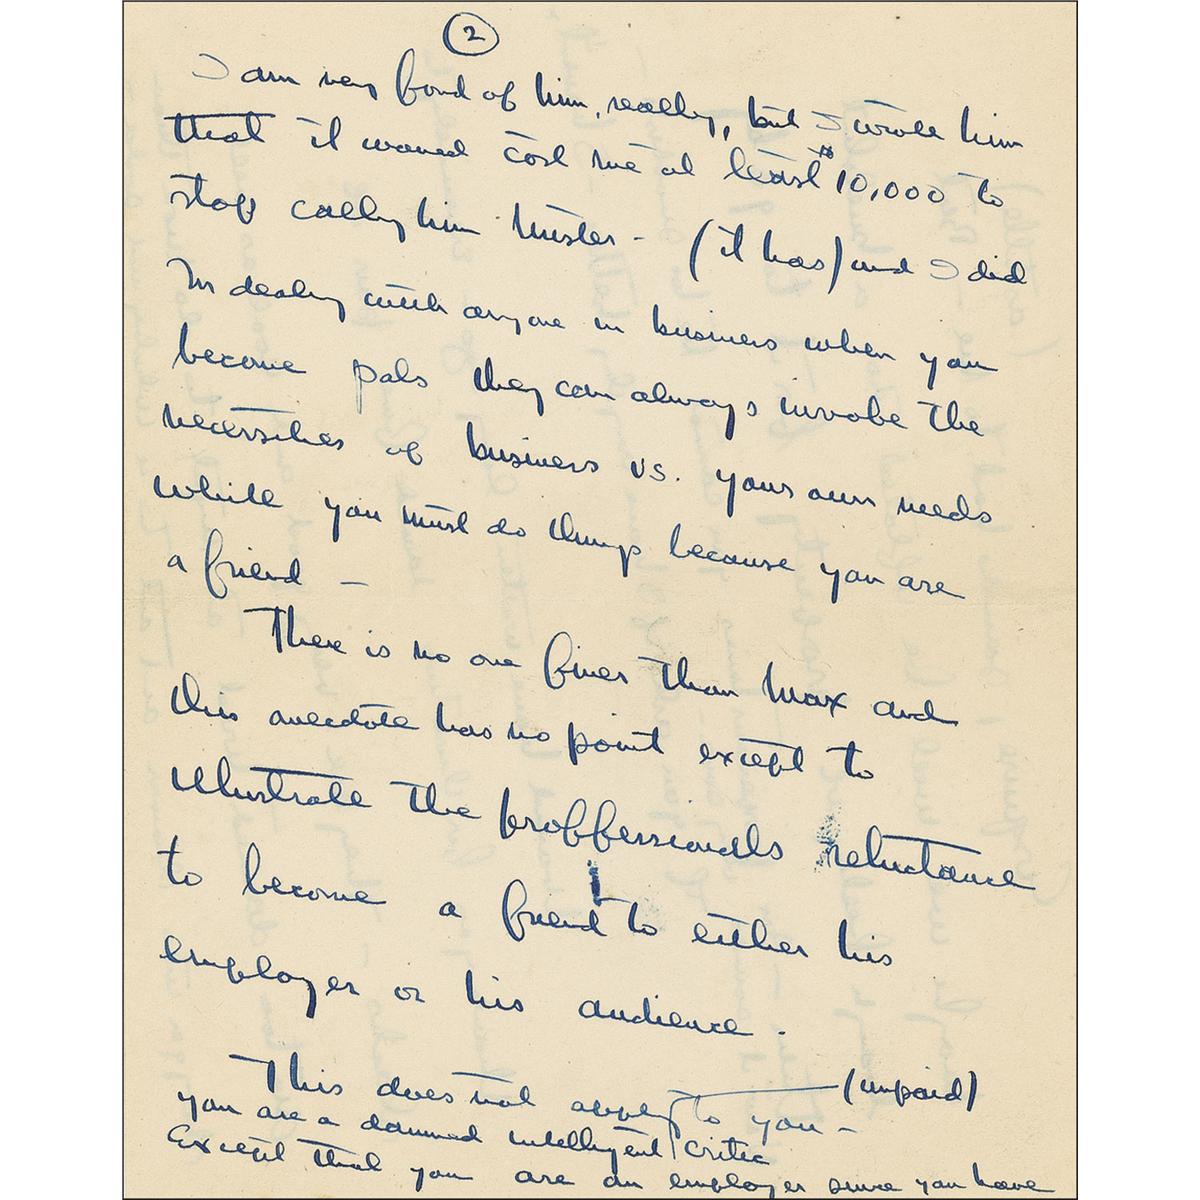 2
I am very fond of him, really, but I wrote him
that it would cost me at least $10,000 to
stop calling him Mister - (it has) and I did
In dealing with anyone in business when you
become pals they can always invoke the
necessities of business vs. your own needs
while you must do things because you are
a friend -
There is no one finer than Max and
this anecdote has no point except to
illustrate the proffessionals reluctance
to become a friend to either his
employer or his audience.
This does not apply to you - (unpaid)
you are a damned intelligent critic
Except that you are an employer since you have